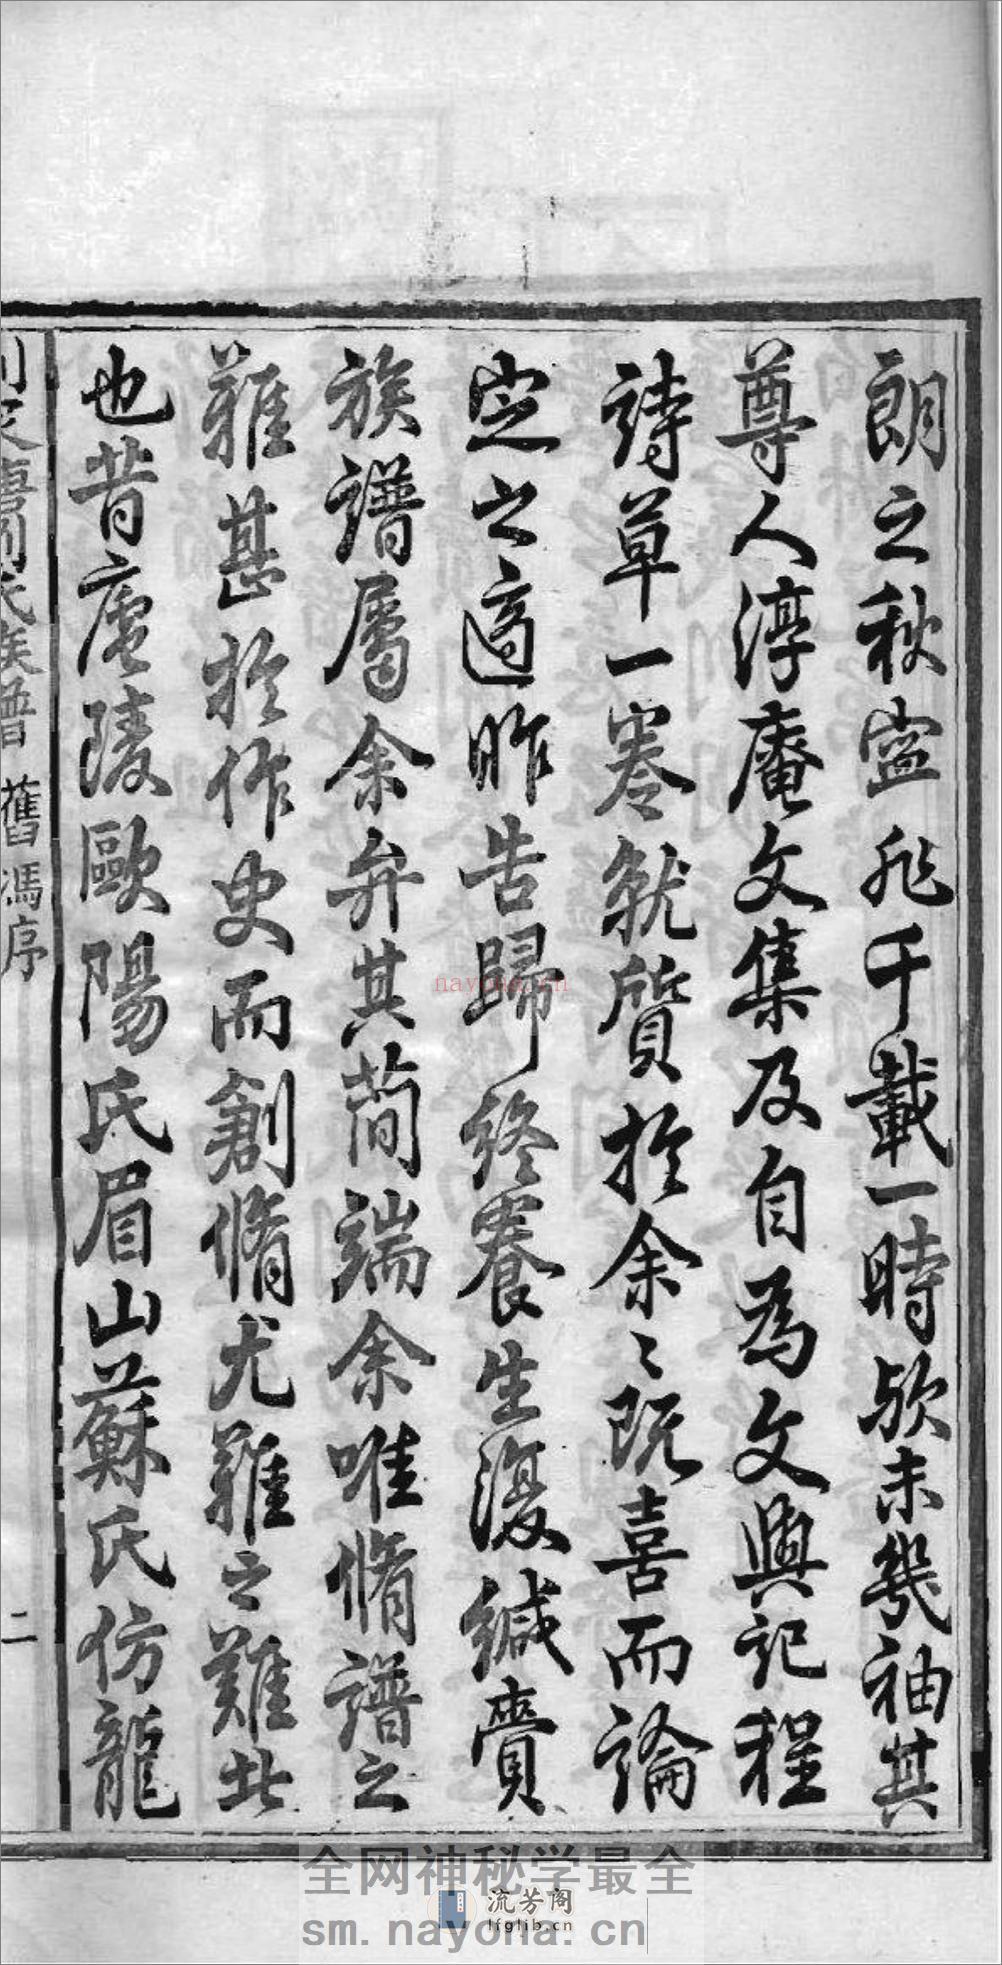 朗之秋實非千載一時歟未幾袖其
尊人淳庵文集及自為文與記程
詩草一卷就質於余〻既喜而論
定之適昨告歸終養生復緘賫
族譜屬余弁其簡端余唯脩譜之
難甚於作史而創脩尤難之難此
也昔廬陵歐陽氏眉山蘇氏仿龍
氏族譜 舊馮序 二
nayona.cn
全网神秘学最全
流芳阁
lfglib.cn
sm.nayona.cn